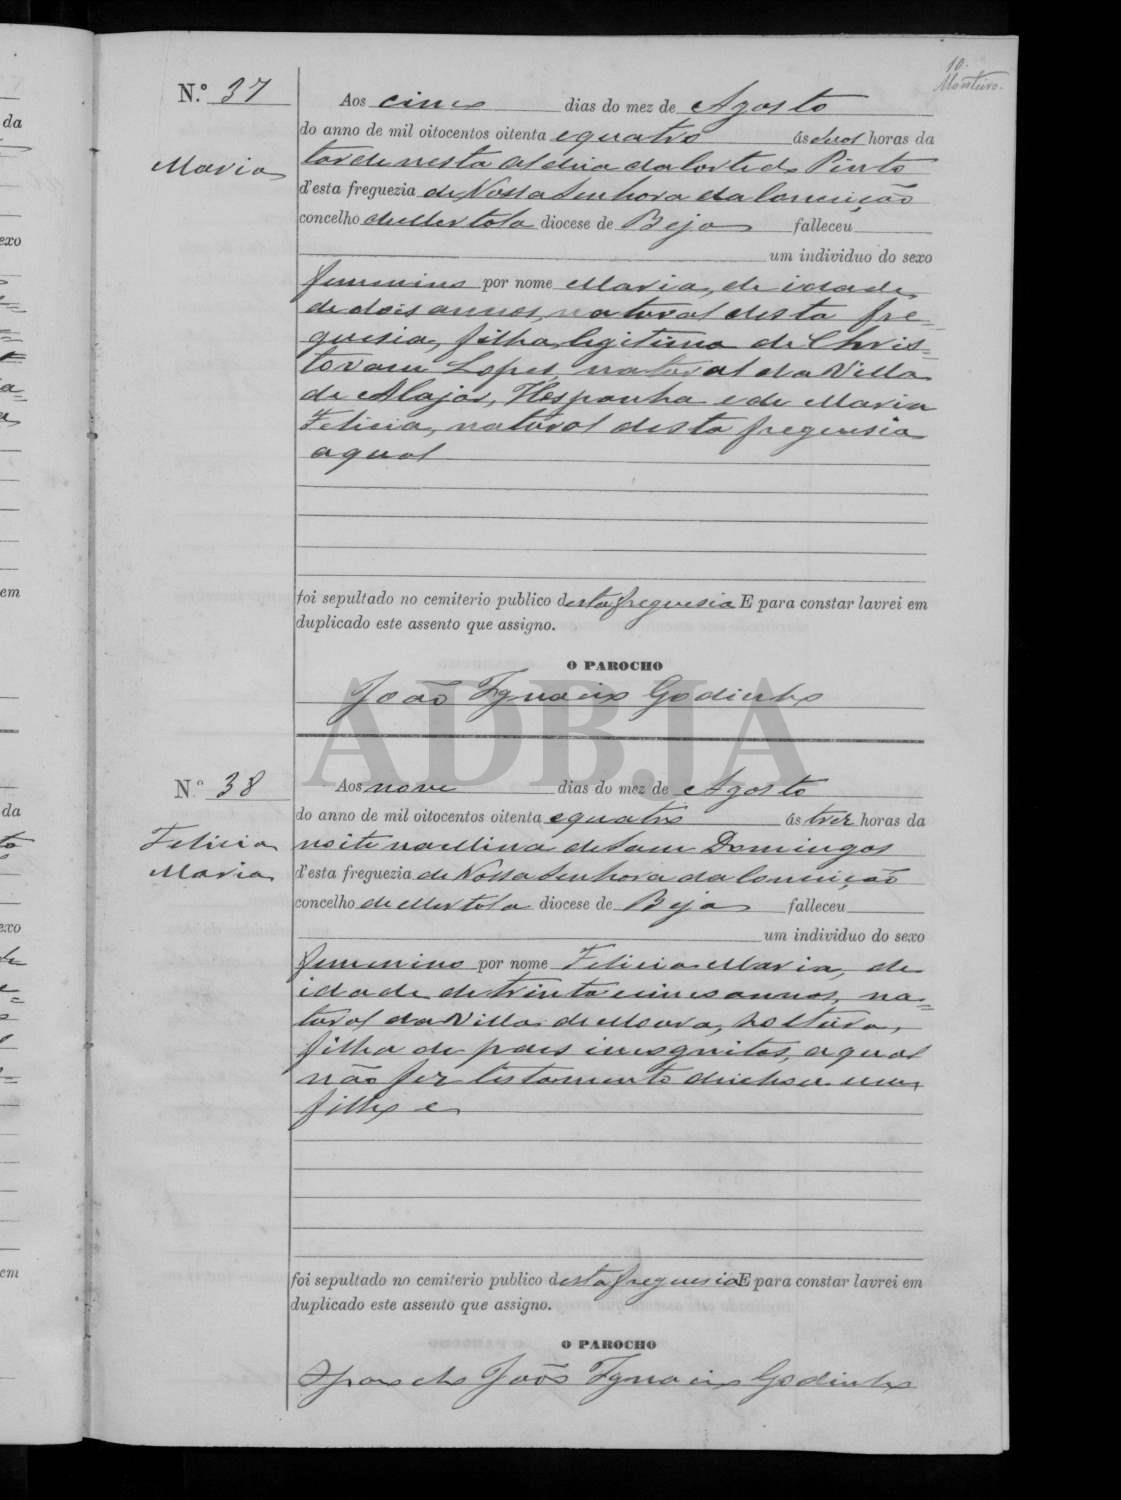 10.
Monteiro.
N.º 37
Maria
Aos cinco dias do mez de Agosto
do anno de mil oitocentos oitenta e quatro ás duas horas da
tarde nesta Aldeia da Corte do Pinto
d'esta freguezia de Nossa Senhora da Conceição
concelho de Mertola diocese de Beja falleceu
um individuo do sexo
femenino por nome Maria, de idade
de dois annos, natural desta fre=
guesia, filha legitima de Chris=
tovam Lopes, natural da Villa
de Alajar, Hespanha e de Maria
Felicia, natural desta freguesia
a qual
foi sepultado no cemiterio publico desta freguesia E para constar lavrei em
duplicado este assento que assigno.
O PAROCHO
João Ignacio Godinho
ADBJA
N.º 38
Felicia
Maria
Aos nove dias do mez de Agosto
do anno de mil oitocentos oitenta e quatro ás trez horas da
noite na Mina de Sam Domingos
d'esta freguezia de Nossa Senhora da Conceição
concelho de Mertola diocese de Beja falleceu
um individuo do sexo
femenino por nome Felicia Maria, de
idade de trinta e cinco annos, na=
tural da Villa de Moura, solteira,
filha de paes incognitos, a qual
não fez testamento deichou um
filho e
foi sepultado no cemiterio publico desta freguesia E para constar lavrei em
duplicado este assento que assigno.
O PAROCHO
O parocho João Ignacio Godinho